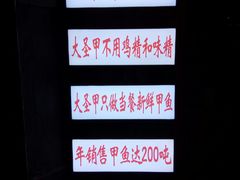 大圣甲不用鸡精和味精
大圣甲只做当餐新鲜甲鱼
年销售甲鱼达200吨